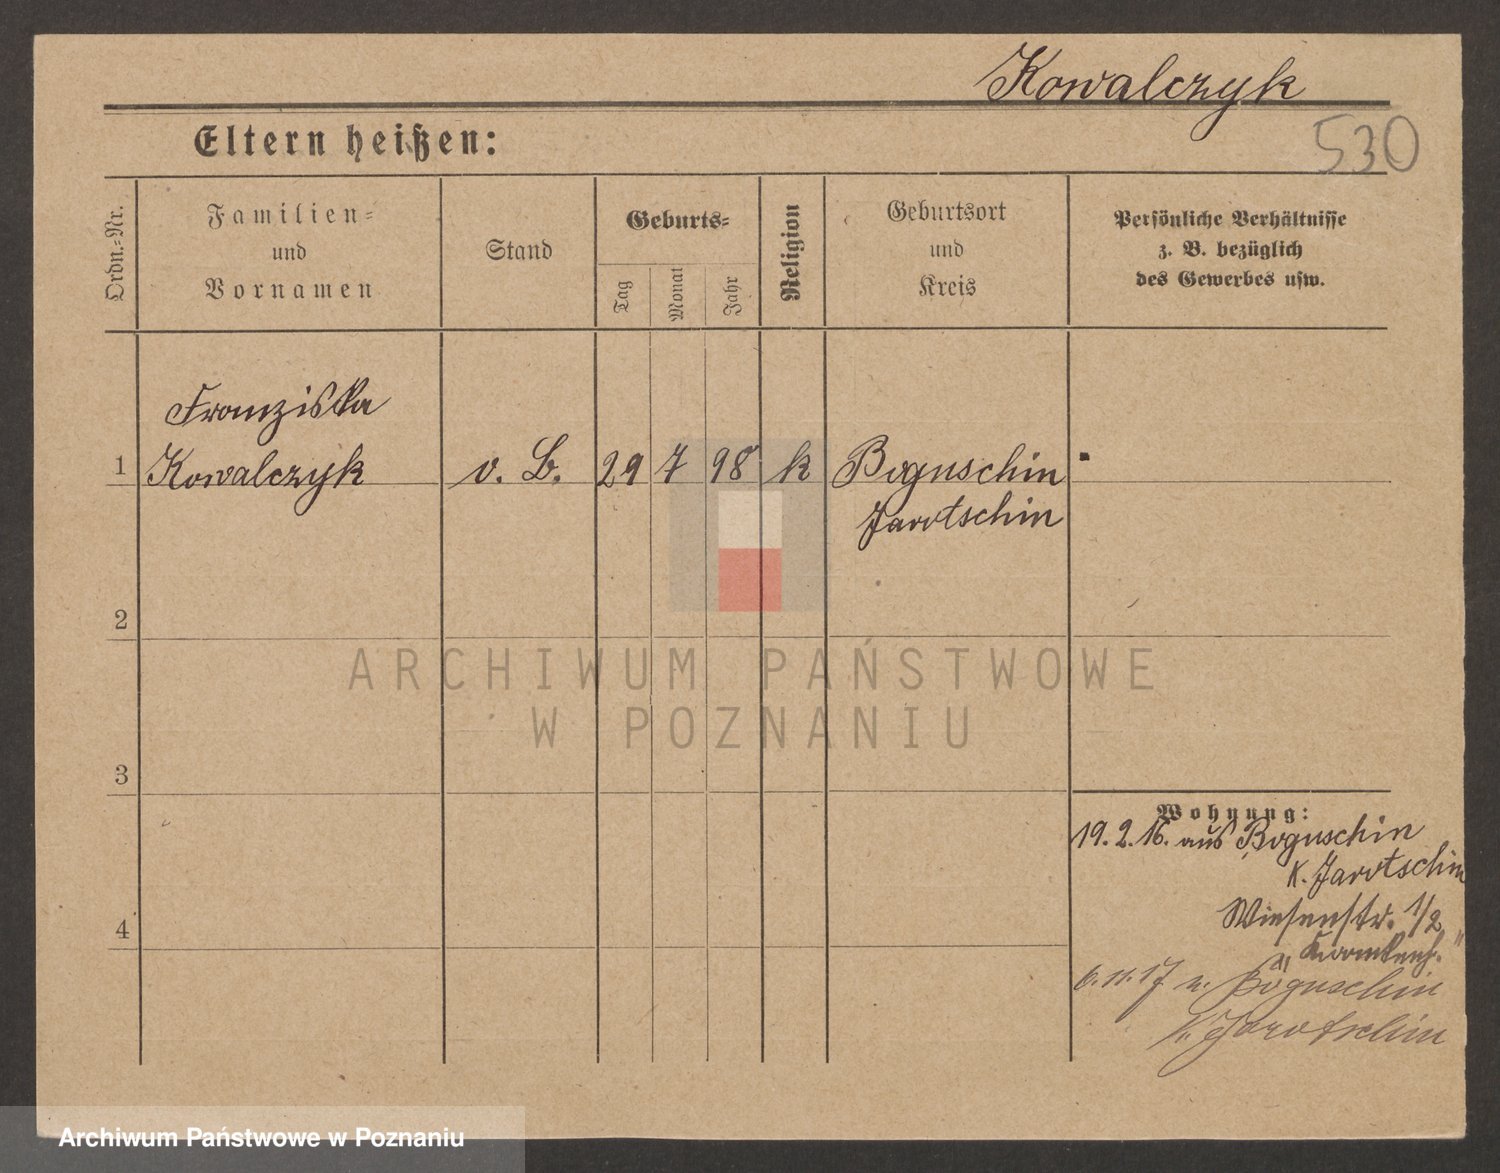 Kowalczyk
530
Eltern heißen:
Ordn.=Nr.
Familien=
und
Vornamen
Stand
Geburts=
Tag
Monat
Jahr
Religion
Geburtsort
und
Kreis
Persönliche Verhältnisse
z. B. bezüglich
des Gewerbes usw.
Franziska
1 Kowalczyk v. B. 29 7 98 k Boguschin
Jarotschin
2
ARCHIWUM PAŃSTWOWE
W POZNANIU
3
Wohnung:
19.2.16. aus Boguschin
K. Jarotschin
Wiesenstr. 1/2
4
"Krankenh."
6.11.17 n. Boguschin
K. Jarotschin
Archiwum Państwowe w Poznaniu